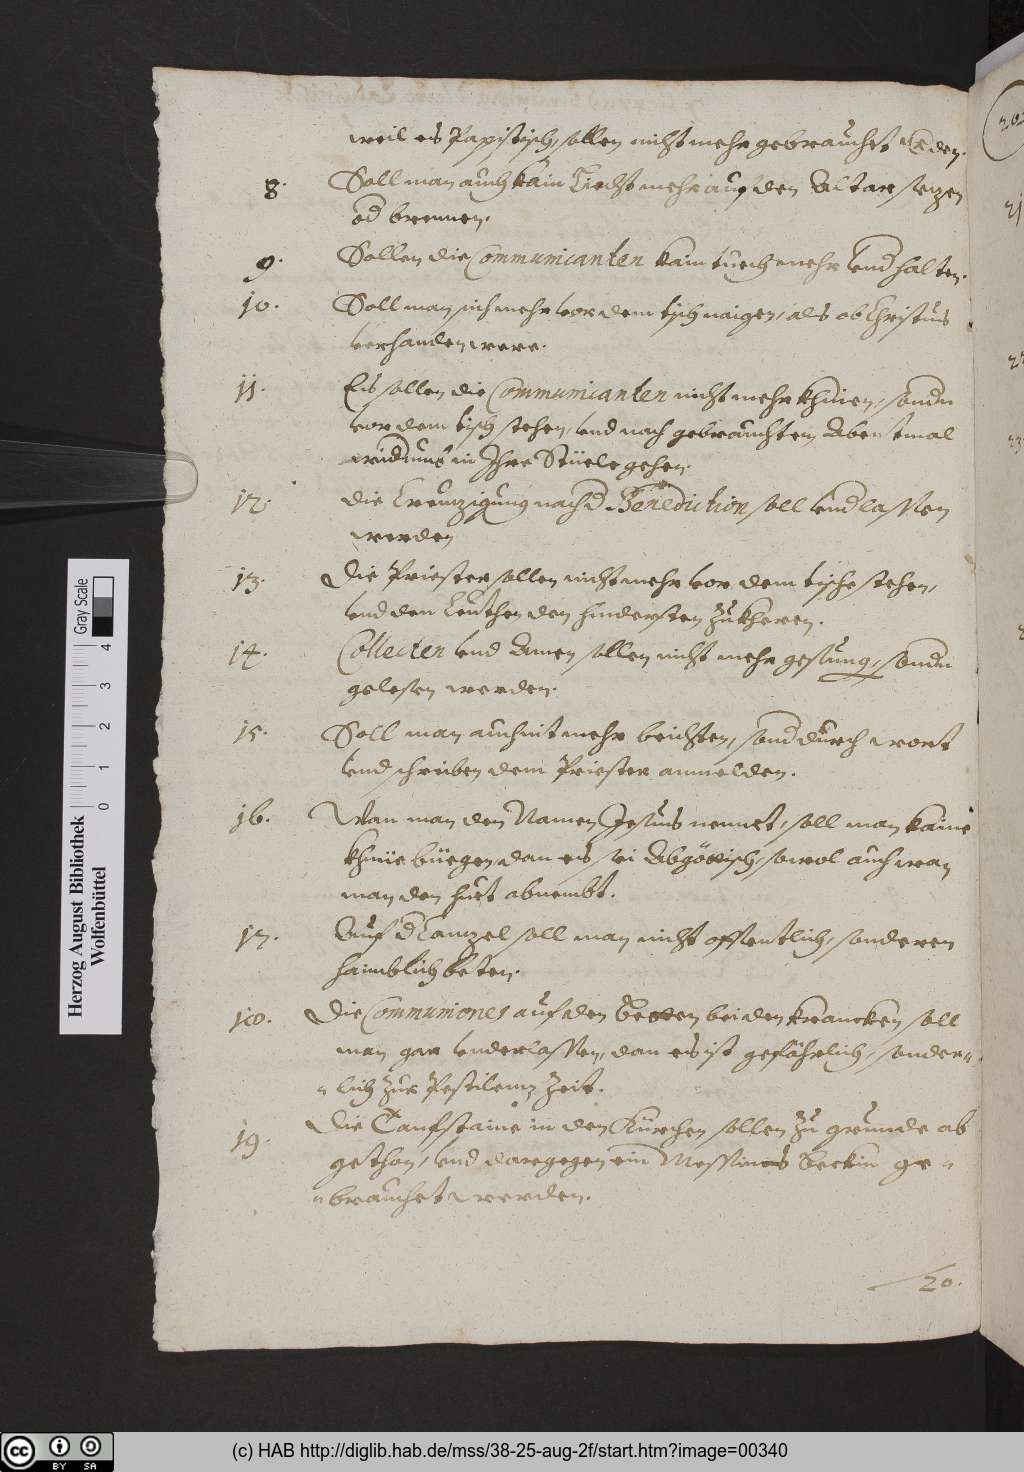 weil es Papistisch, sollen nicht mehr gebrauchet werden.
8. Soll man auch kain Liecht mehr auf den Altar sezen
od brennen.
9. Sollen die Communicanten kain tuech mehr vnd halten.
10. Soll man nich mehr vor dem tisch naigen, als ob Christus
verhanden were.
11. Es sollen die Communicanten nicht mehr khnien, sondn
vor dem tisch stehen, vnd nach gebrauchtem Abentmal
widumb in Ihre Stüele gehen.
12. die Creuzigung nach d Benediction soll vnd lassen
werden
13. Die Priester sollen nicht mehr vor dem tische stehen,
vnd den Leuthen den hindersten zukheren.
14. Collecten vnd Amen sollen nicht mehr gesung, sondn
gelesen werden.
15. Soll man auch nit mehr beichten, sond durch wort
vnd schreiben dem Priester anmelden.
16. Wan man den Namen Jesus nennet, soll man kaine
khnie büegen, dan es sei Abgöttisch, sowol auch wan
man den huet abnembt.
17. Auf d Canzel soll man nicht offentlich, sonderen
haimblich beten.
18. Die Communiones auf den Betten bei den krancken soll
man gar vnderlassen, dan es ist gefährlich, sonder=
=lich zur Pestilenz Zeit.
19. Die Taufstaine in den Kürchen sollen zu grunde ab
gethan, vnd daregegen ein Messines Beckin ge=
=brauchet werden.
20.
Herzog August Bibliothek
Wolfenbüttel
0 1 2 3 4
Gray Scale
cc BY SA
(c) HAB http://diglib.hab.de/mss/38-25-aug-2f/start.htm?image=00340